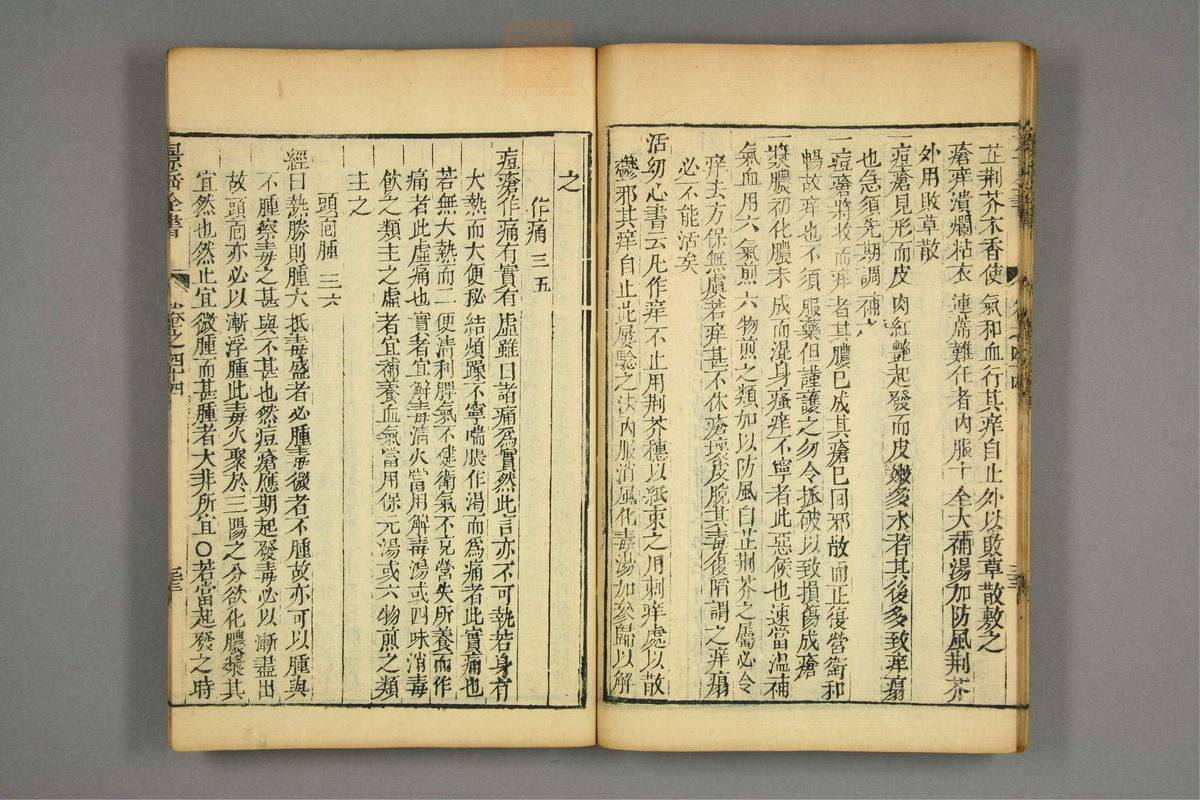 芷荆芥木香使氣和血行其痒自止外以敗草散敷之
瘡痒潰爛粘衣連蓆難任者內服十全大補湯加防風荆芥
外用敗草散
一痘瘡見形而皮肉紅艷起發而皮嫩多水者其後多致痒瘍
也急須先期調補
一痘瘡將收而痒者其膿已成其瘡已回邪散而正復營衛和
暢故痒也不須服藥但謹護之勿令抓破以致損傷成瘡
一漿膿初化膿未成而混身瘙痒不寧者此惡候也速當溫補
氣血用六氣煎六物煎之類加以防風白芷荆芥之屬必令
痒去方保無虞若痒甚不休瘡壞皮脫其毒復陷謂之痒瘍
必不能活矣
活幼心書云凡作痒不止用荆芥穗以紙束之用刺痒處以散
鬱邪其痒自止此屢驗之法內服消風化毒湯加參歸以解
之
作痛 三五
痘瘡作痛有實有虛雖曰諸痛爲實然此言亦不可執若身有
大熱而大便秘結煩躁不寧喘脹作渴而爲痛者此實痛也
若無大熱而二便清利脾氣不健衛氣不克營失所養而作
痛者此虛痛也實者宜解毒清火當用解毒湯或四味消毒
飲之類主之虛者宜補養血氣當用保元湯或六物煎之類
主之
頭面腫 三六
經曰熱勝則腫大抵毒盛者必腫毒微者不腫故亦可以腫與
不腫察毒之甚與不甚也然痘瘡應期起發毒必以漸盡出
故頭面亦必以漸浮腫此毒火聚於三陽之分欲化膿漿其
宜然也然止宜微腫而甚腫者大非所宜○若當起發之時
景岳全書
卷之四十四